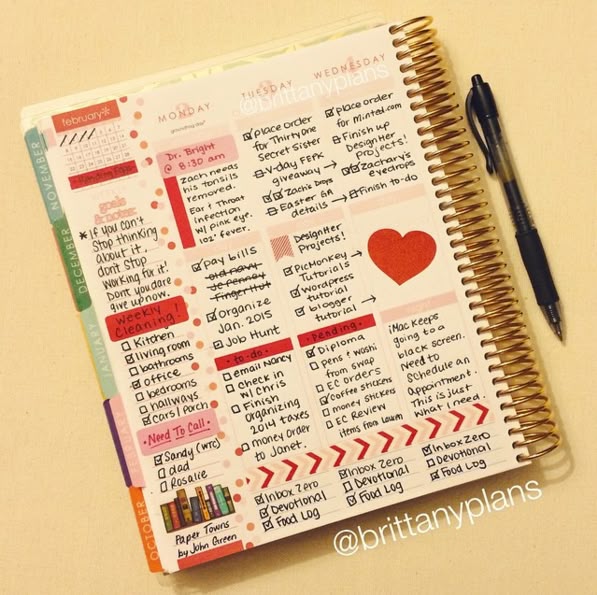 february*
goals
& notes:
* If you can't
stop thinking
about it,
don't stop
working for it!
Don't you dare
give up now.
weekly
cleaning!
Kitchen
living room
bathrooms
office
bedrooms
hallways
cars / porch
Need To Call
Sandy (WTC)
dad
Rosalie
Paper Towns
by John Green
MONDAY
groundhog day
Dr. Bright
@ 8:30 am
Zach needs
his tonsils
removed.
Ear & Throat
infection
w/ pink eye.
102° fever.
Pay bills
old navy
JC Penney
Fingerhut
Organize
Jan. 2015
Job Hunt
to-do
email Nancy
check in
w/ Chris
Finish
organizing
2014 taxes
money order
to Janet.
Inbox Zero
Devotional
Food Log
TUESDAY
place order
for ThirtyOne
Secret Sister
V-day FFPK
giveaway
Zach's Drops
Easter GA
details
DesignHer
Projects!
PicMonkey
Tutorials
Wordpress
tutorial
blogger
tutorial
pending
Diploma
pens & washi
from swap
EC orders
Coffee stickers
money stickers
EC Review
items from Lauren
Inbox Zero
Devotional
Food Log
WEDNESDAY
place order
for Minted.com
Finish up
DesignHer
Projects!
Zachary's
eyedrops
Finish to-do
iMac keeps
going to a
black screen.
Need to
schedule an
appointment.
This is just
what I need.
Inbox Zero
Devotional
Food Log
NOVEMBER
DECEMBER
JANUARY
FEBRUARY
OCTOBER
@brittanyplans
@brittanyplans